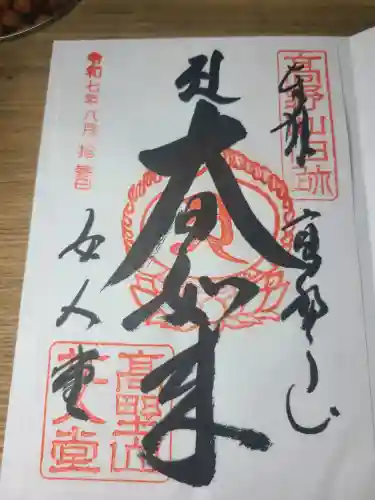 奉拝
高野山旧跡
高野山
大日如来
令和七年八月拾参日
女人堂
高野山
女人堂